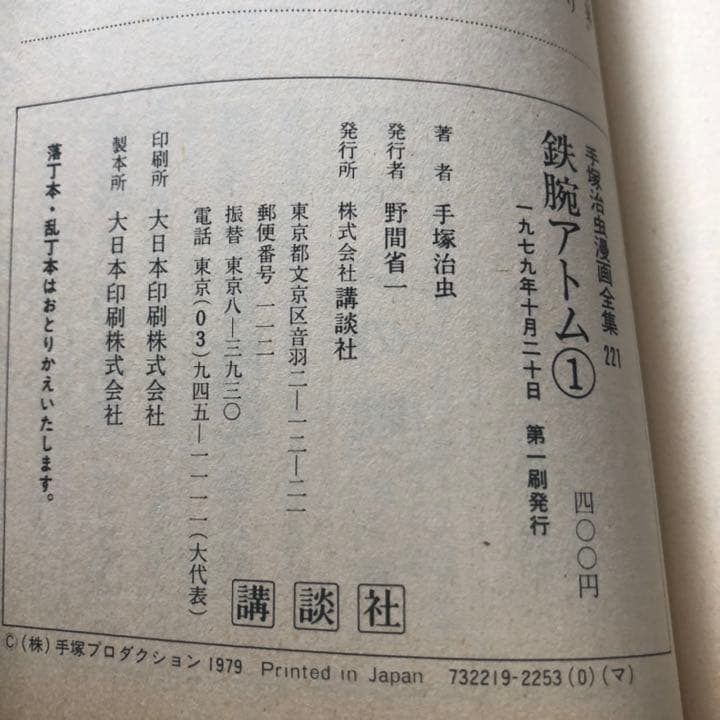 手塚治虫漫画全集 221
鉄腕アトム①
四〇〇円
一九七九年十月二十日 第一刷発行
著者 手塚治虫
発行者 野間省一
発行所 株式会社講談社
東京都文京区音羽二—一二—二一
郵便番号 一一二
振替 東京八—三九三〇
電話 東京(03)九四五—一一一一(大代表)
印刷所 大日本印刷株式会社
製本所 大日本印刷株式会社
落丁本・乱丁本はおとりかえいたします。
講談社
©(株)手塚プロダクション 1979 Printed in Japan 732219-2253(0)(マ)